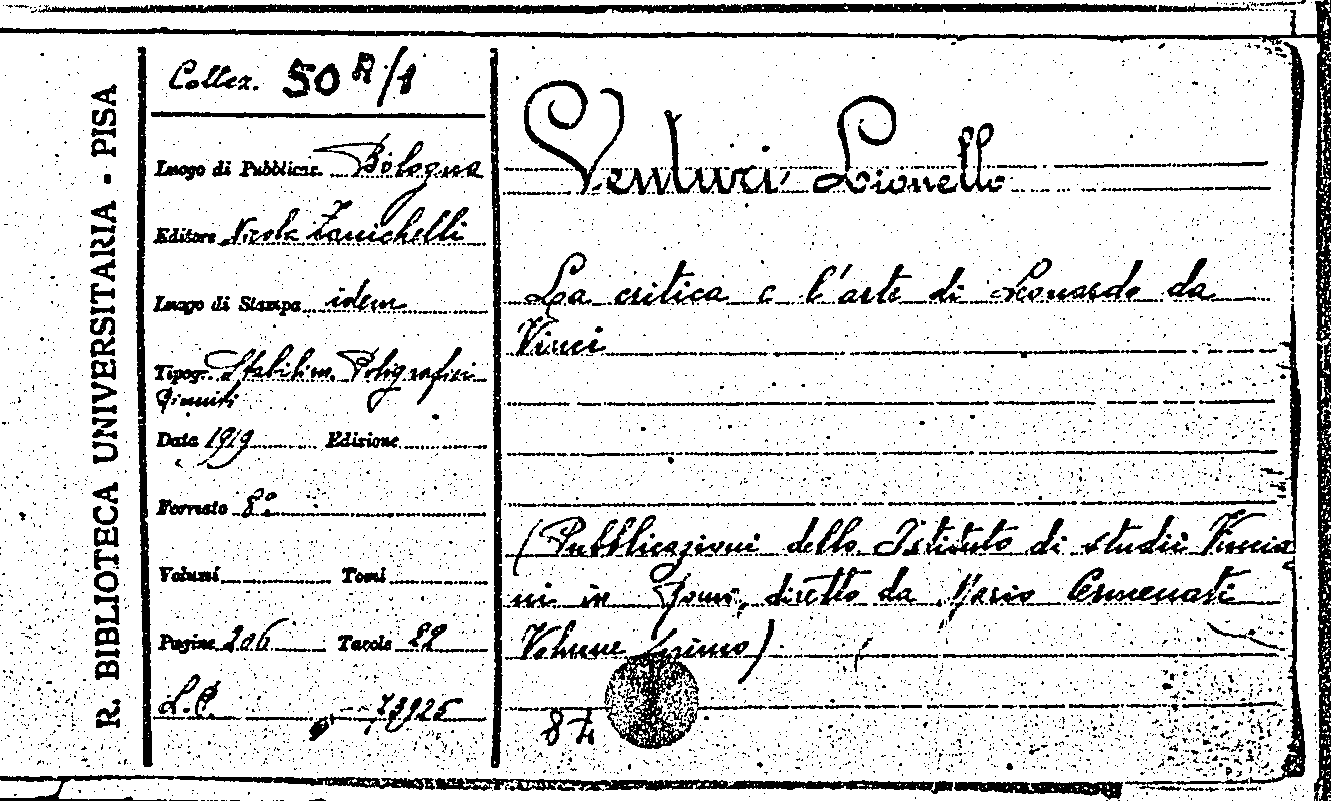 R. BIBLIOTECA UNIVERSITARIA - PISA
Collez. 50 A/1
Luogo di Pubblicaz. Bologna
Editore Nicola Zanichelli
Luogo di Stampa idem
Tipogr. Stabilim. Poligrafici
Riuniti
Data 1919 Edizione
Formato 8º
Volumi Tomi
Pagine 206 Tavole
L.P. 73925
Venturi Lionello
La critica e l'arte di Leonardo da
Vinci
(Pubblicazioni dello Istituto di studii Vincia
ni in Roma, diretto da Mario Cermenati
Volume primo)